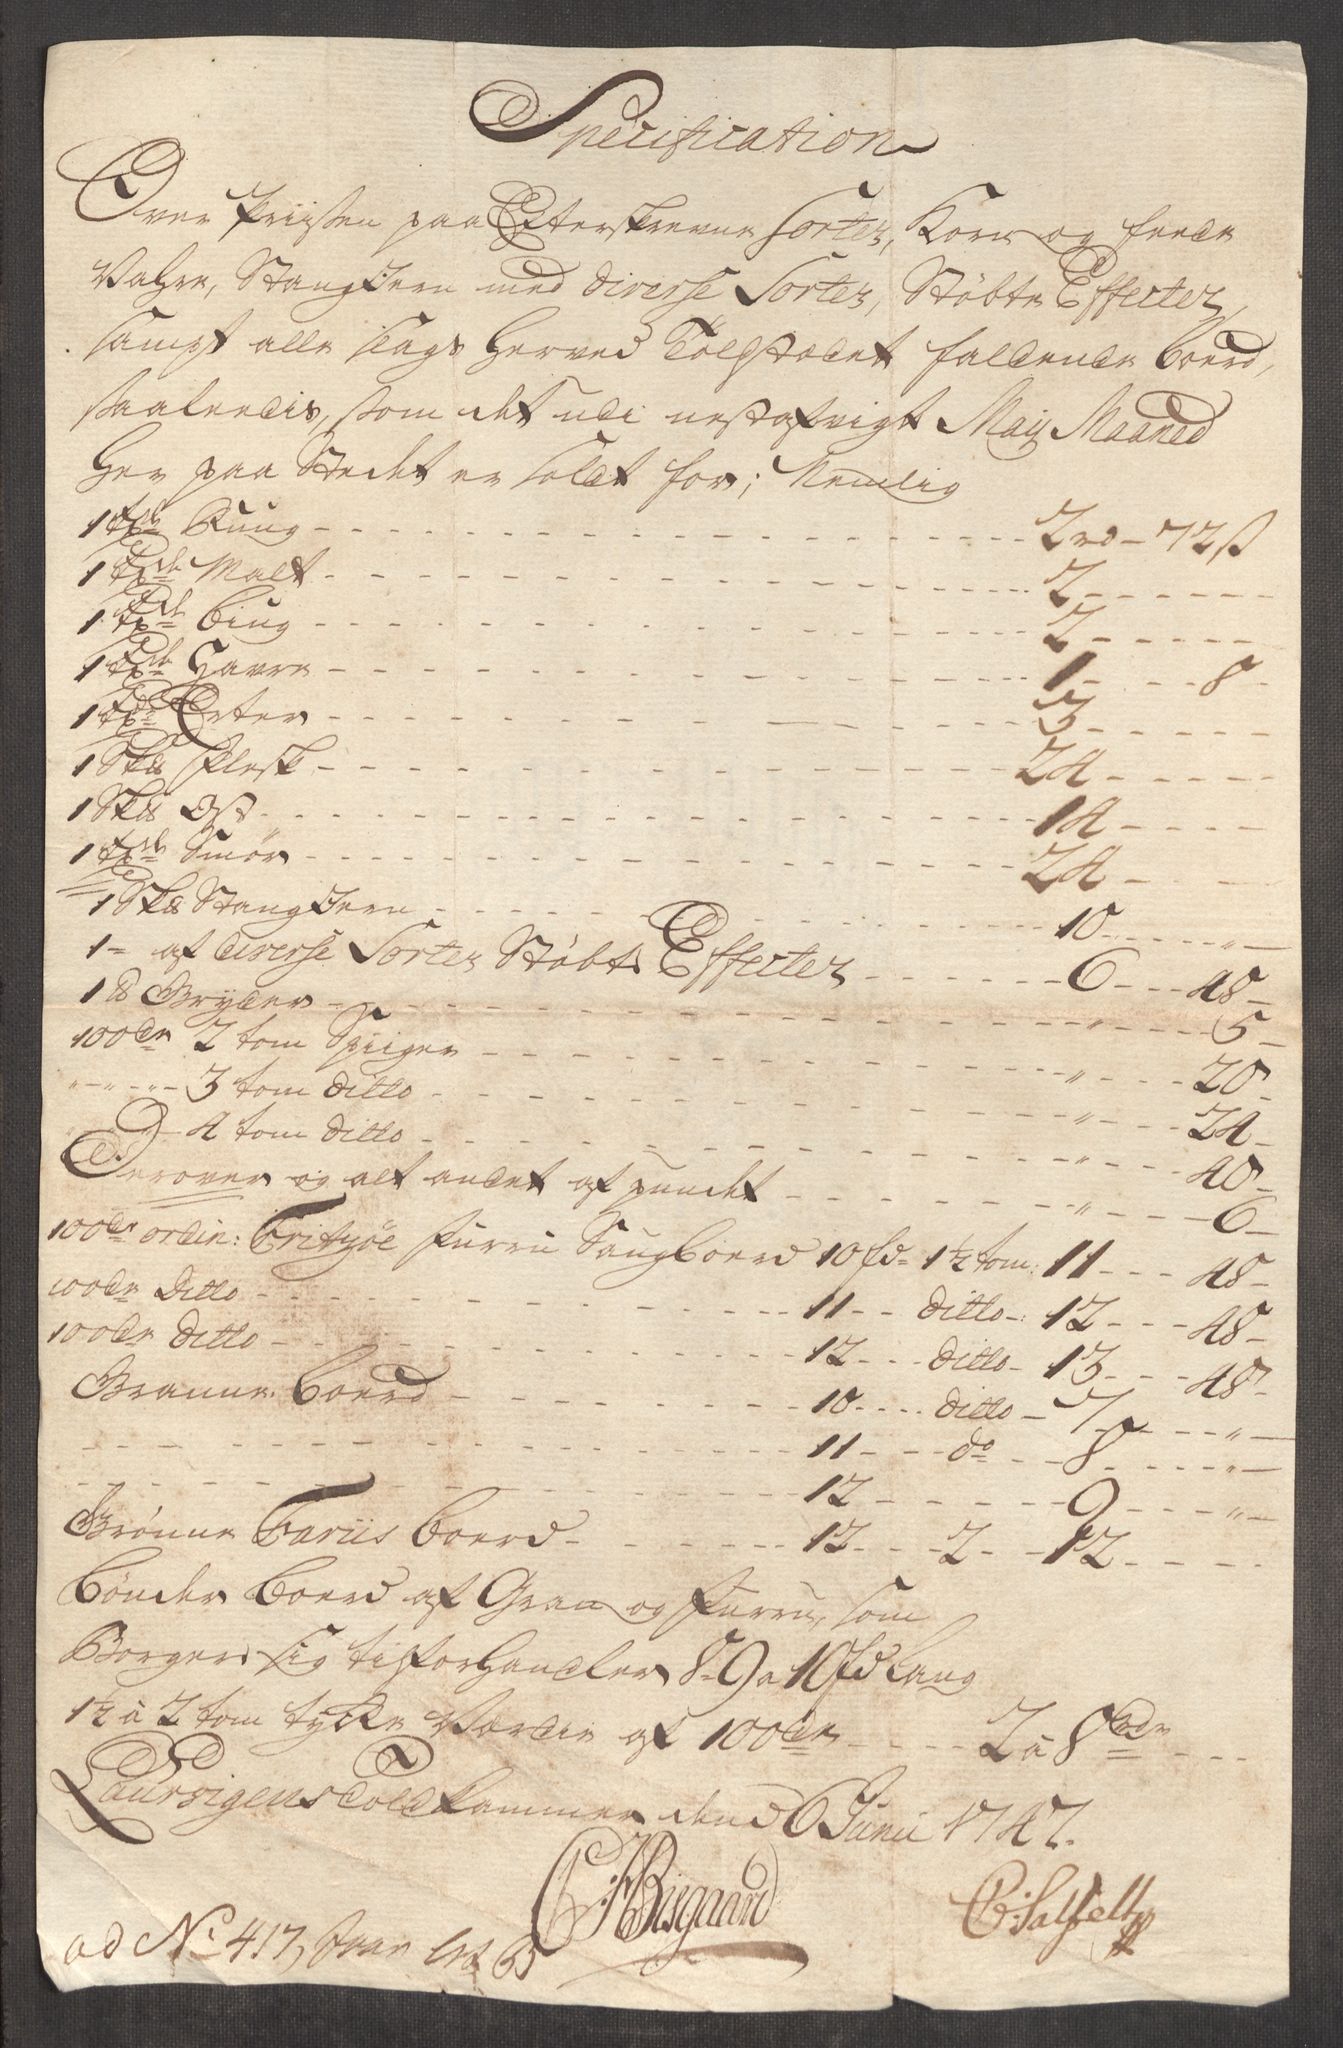 Specification
Over Priissen paa Efterskrevne Sorter, Korn og feede
Vahre, Stang Jern med diverse Sorter, Støbte Effecter,
sampt alle slags herved Toldstædet faldende Boerd,
saaledis, som det udi nestafvigt Maij Maaned
her paa Stedet er soldt for; Nemlig
1 Tde Rug - - - 2 rd - 72 ß
1 Tde Malt - - - 2 - - -
1 Tde Biug - - - 2 - - -
1 Tde Havre - - - 1 - - - 8 -
1 Tde Erter - - - 3 - - -
1 Sk℔ Flesk - - - 24 - - -
1 Sk℔ Ost - - - 14 - - -
1 Tde Smør - - - 24 - - -
1 Sk℔ Stang Jern - - - 10 - - - " -
1 - af diverse Sorter Støbte Effecter - - - 6 - - - 48 -
1 ℔ Gryder - - - " - - - 5 -
100de 2 tom Spiiger - - - " - - - 20 -
" - " - " - 3 tom ditto - - - " - - - 24 -
4 tom ditto - - - " - - - 40 -
Derover og alt andet af pundet - - - " - - - 6 -
100de ordin: Fritzøe Furru Saug boerd 10 fd - 1½ tom: 11 - - - 48 -
100de Ditto - - - 11 - - ditto - : 12 - - - 48 -
100de ditto - - - 12 - - - ditto - 13 - - - 48 -
Granne boerd - - - 10 - - - ditto - 7 - - - " -
- - - 11 - - - do - - - 8 - - - " -
- - - 12 - - - 9 - - - " -
Grønne Fariis boerd - - - 12 - - - 2 - - 12 - - -
Bønder boerd af Gran og Furru, som
Borgere sig tilforhandler 8 - 9 a 10 fd lang
1½ a 2 tom tycke Værdie af 100de - - - 2 a 8 rdr - - -
Laurvigens Toldkammer dend 6 Junii 1747.
C: F Bisgaard C: Salfelt
ad No 417, 65